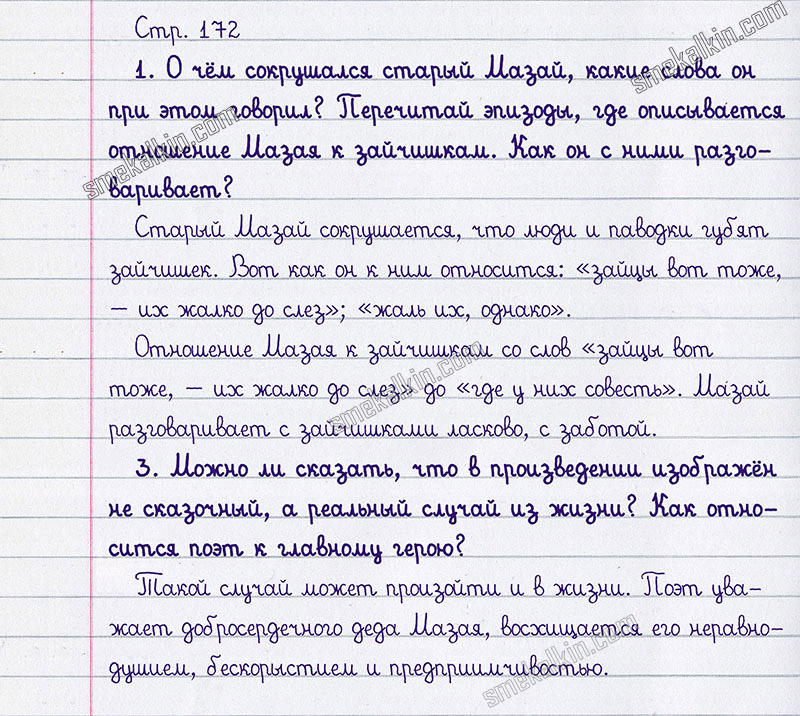 Стр. 172
1. О чём сокрушался старый Мазай, какие слова он
при этом говорил? Перечитай эпизоды, где описывается
отношение Мазая к зайчишкам. Как он с ними разго-
варивает?
Старый Мазай сокрушается, что люди и паводки губят
зайчишек. Вот как он к ним относится: «зайцы вот тоже,
– их жалко до слез»; «жаль их, однако».
Отношение Мазая к зайчишкам со слов «зайцы вот
тоже, – их жалко до слез» до «где у них совесть». Мазай
разговаривает с зайчишками ласково, с заботой.
3. Можно ли сказать, что в произведении изображён
не сказочный, а реальный случай из жизни? Как отно-
сится поэт к главному герою?
Такой случай может произойти и в жизни. Поэт ува-
жает добросердечного деда Мазая, восхищается его неравно-
душием, бескорыстием и предприимчивостью.
smekalkin.com
smekalkin.com
smekalkin.com
smekalkin.com